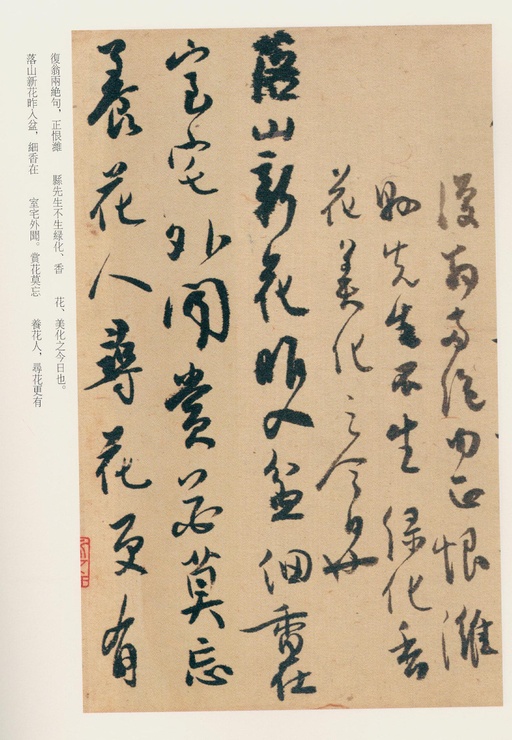 復翁兩絶句正恨濰
縣先生不生緑化香
花美化之今日也
落山新花昨入盆細香在
室宅外聞賞花莫忘
養花人尋花更有
復翁兩絶句，正恨濰　縣先生不生緑化、香　花、美化之今日也。
落山新花昨入盆，細香在　室宅外聞。賞花莫忘　養花人，尋花更有